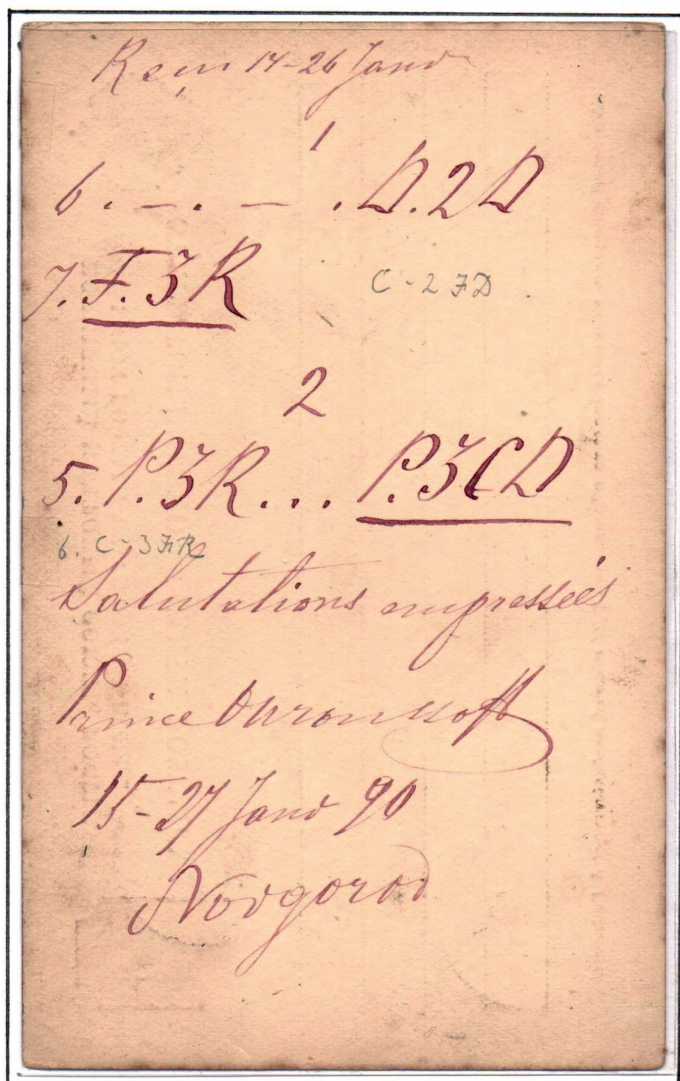 Reçu 14-26 Janv
1
6. — . — . D.2D
7. F.3R C-2FD
2
5. P.3R... P.3CD
6. C-3FR
Salutations empressées
Prince
15-27 Janv 90
Novgorod